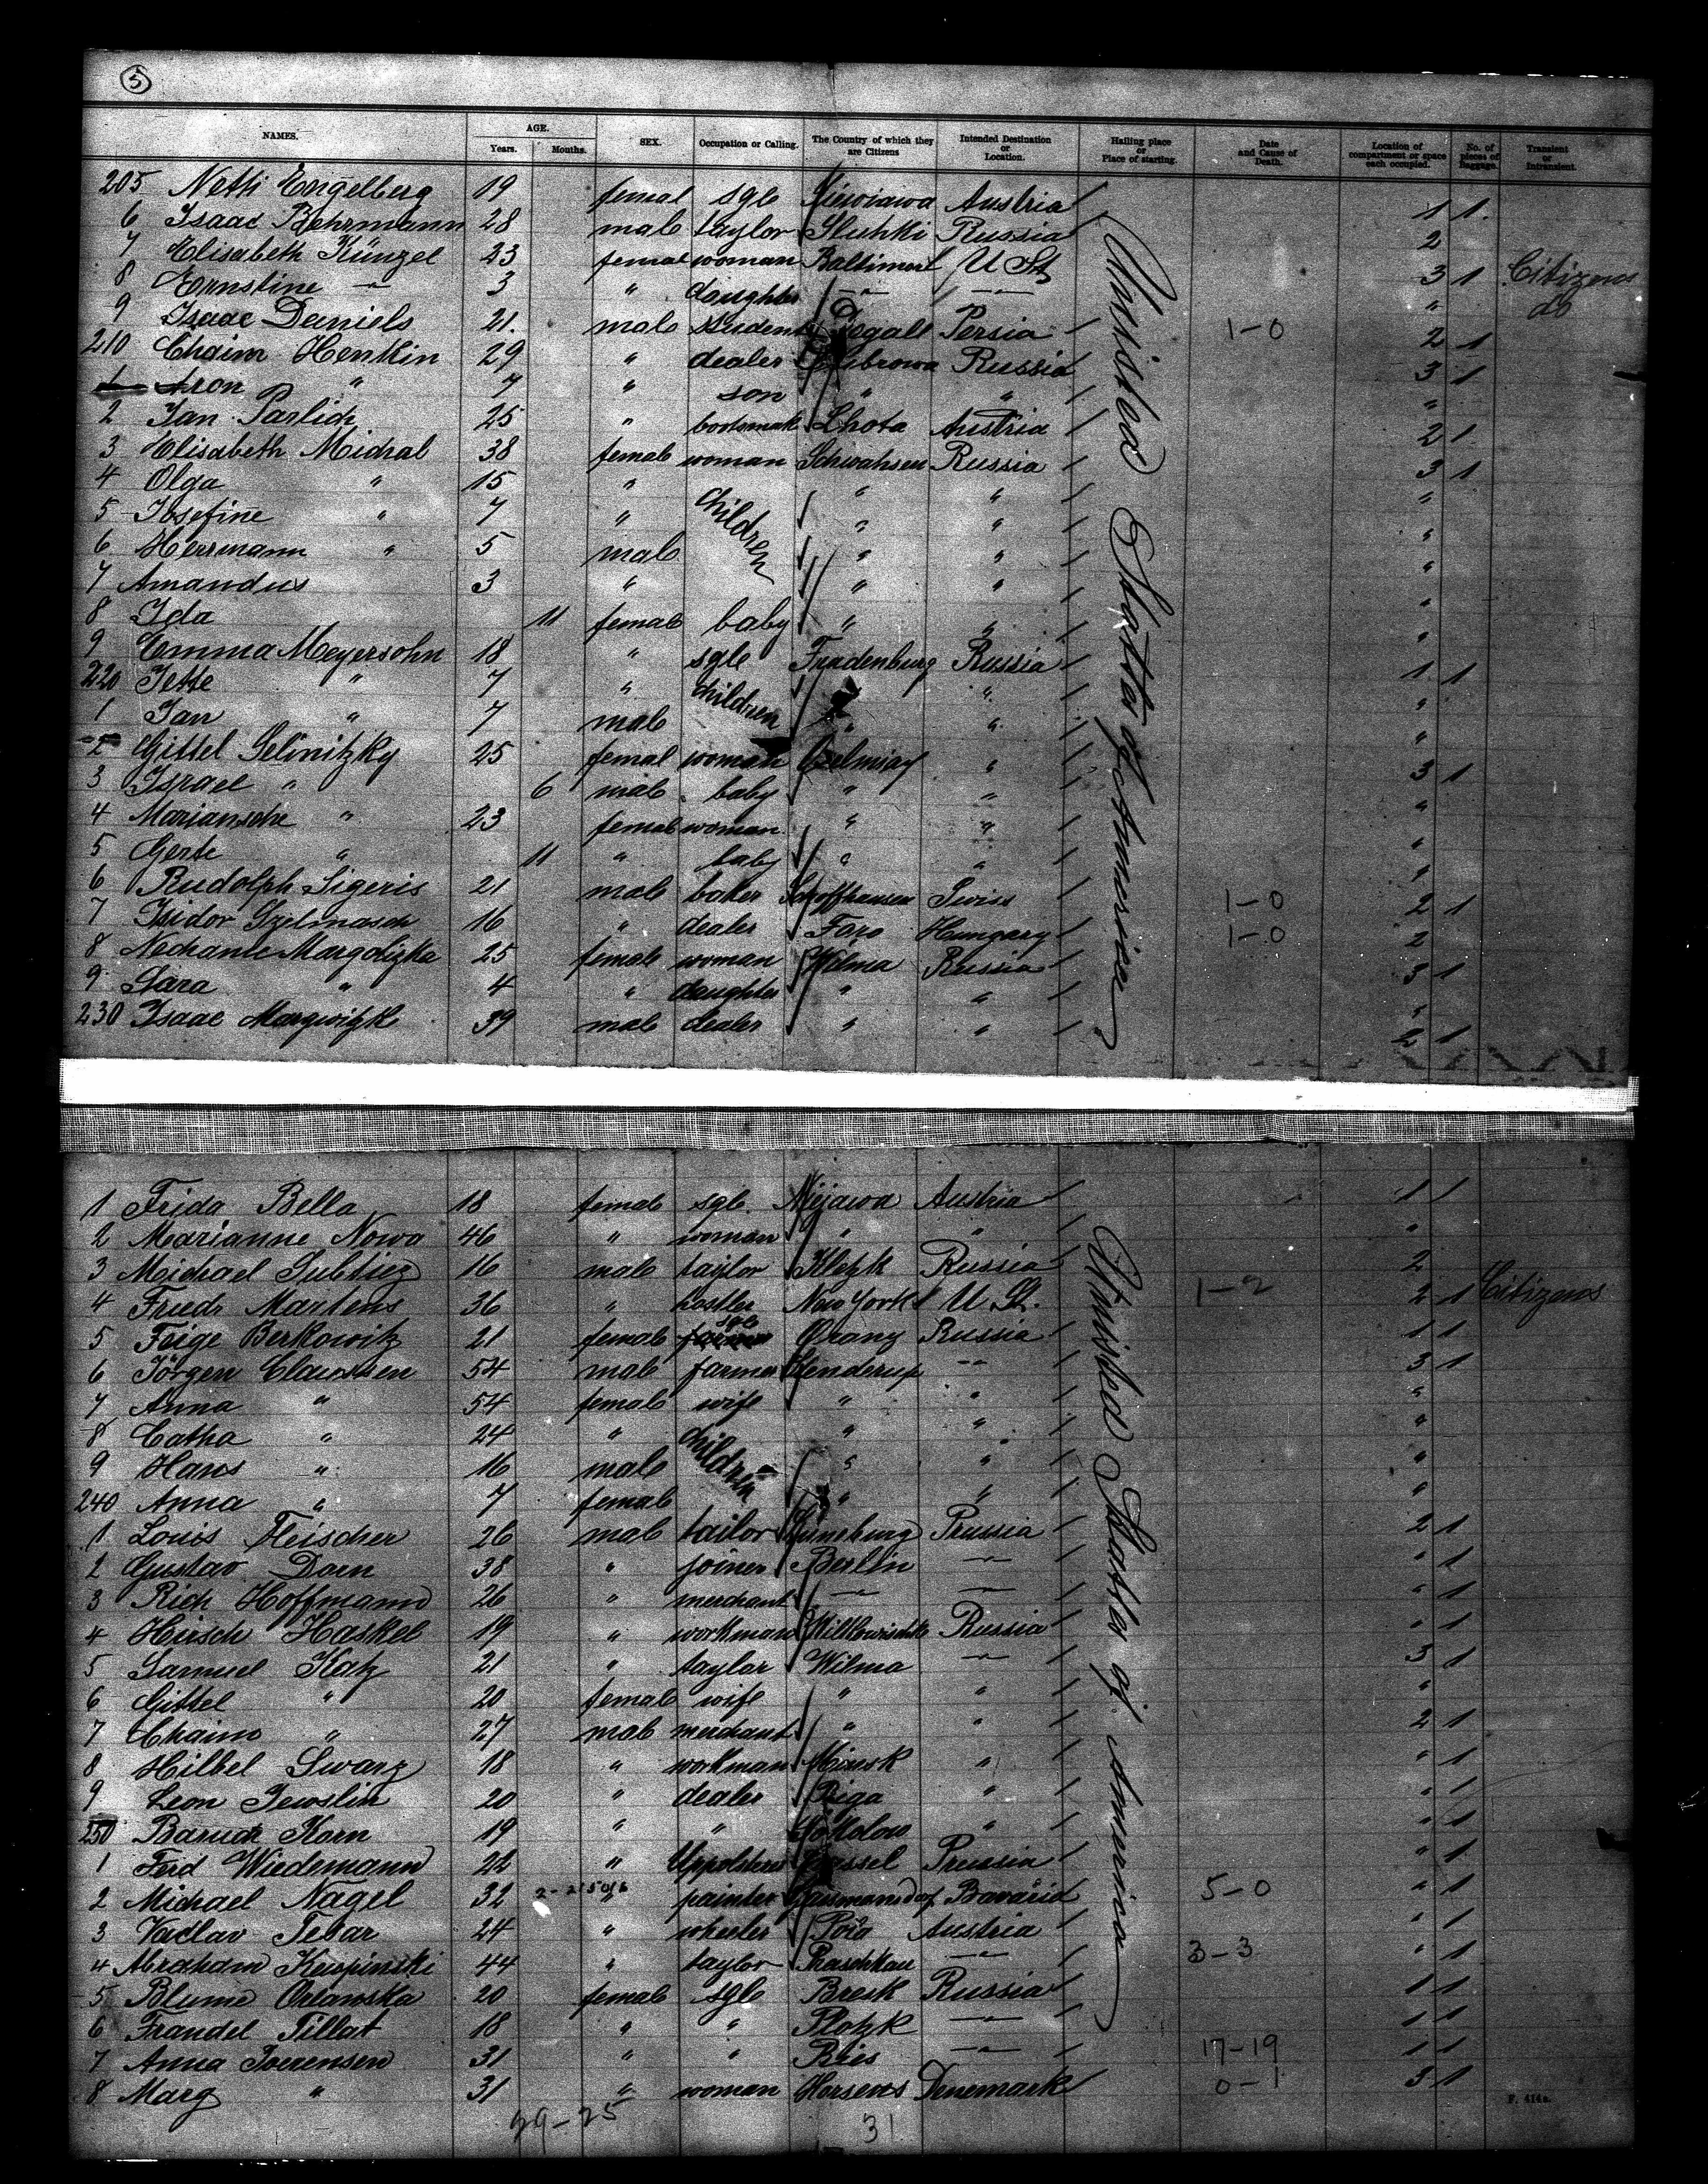 5
NAMES. AGE. Years. Months. SEX. Occupation or Calling. The Country of which they are Citizens Intended Destination or Location. Hailing place or Place of starting. Date and Cause of Death. Location of compartment or space each occupied. No. of pieces of Baggage. Transient or Intransient.
205 Netti Engelberg 19 femal sgle Austria 1 1
6 Isaac Behrmann 28 male taylor Sluhki Russia 2
7 Elisabeth Künzel 23 femal woman Baltimore U St 3 1 Citizens
8 Ernstine — 3 " daughter — — " do
9 Isaac Daniels 21. male student Persia 1-0 2 1
210 Chaim Henkin 29 " dealer Russia 3 1
1 Aron " 7 " son " " "
2 Jan Parlich 25 " Lhota Austria 2 1
3 Elisabeth Michal 38 female woman Schwahsen Russia 3 1
4 Olga " 15 " children " " "
5 Josefine " 7 " " " "
6 Herrmann " 5 male " " "
7 Amandus 3 " " " "
8 Ida 11 female baby " " "
9 Emma Meyersohn 18 " sgle Fradenburg Russia 1 1
220 Jette " 7 " children " "
1 Jan " 7 male " " "
2 Gittel Selinitzky 25 femal woman " 3 1
3 Israel " 6 male baby " " "
4 Mariansche " 23 female woman " " "
5 Gerte " 11 " baby " " "
6 Rudolph Sigeris 21 male baker Schaffhausen Swiss 1-0 2 1
7 Isidor 16 " dealer Hungary 1-0 2
8 Nechame Margolizka 25 female woman Wilna Russia 3 1
9 Sara " 4 " daughter " " "
230 Isaac 39 male dealer " " 2 1
United States of America
1 Frida Bella 18 female sgle. Mijawa Austria 1 1
2 Marianne Nowa 46 " woman " " "
3 Michael 16 male taylor Kletzk Russia 2
4 Friedr Martens 36 " hostler New York U St. 1-2 2 1 Citizens
5 Feige Berkowitz 21 female sgle Orany Russia 1 1
6 Jörgen Claussen 54 male farmer Henderup — 3 1
7 Anna " 54 female wife " " "
8 Catha " 24 " children " " "
9 Hans " 16 male " " "
240 Anna " 7 female " " "
1 Louis Fleischer 26 male tailor Luneburg Prussia 2 1
2 Gustav Dorn 38 " joiner Berlin — " 1
3 Rich Hoffmann 26 " merchant — — " 1
4 Hirsch Haskel 19 " workman Russia " 1
5 Samuel Katz 21 " taylor Wilna — 3 1
6 Gittel " 20 female wife " " "
7 Chaim " 27 male merchant " " 2 1
8 Hilbel Swarz 18 " workman Minsk " " 1
9 Leon Jewslin 20 " dealer Riga " " 1
250 Baruch Korn 19 " " " " 1
1 Ferd Wiedemann 22 " Uppolsterer Cassel Prussia " 1
2 Michael Nagel 32 " painter Bavaria 5-0 " 1
3 Vaclav Tesar 24 " wheeler Austria " 1
4 Abraham Kempinski 44 " taylor Raschkau — 3-3 " 1
5 Blume Orlanska 20 female sgle Bresk Russia 1 1
6 Fraudel Tillat 18 " " Plotzk — 1 1
7 Anna Soerensen 31 " " Bries — 17-19 1 1
8 Marg " 31 " woman Horsens Denemark 0-1 3 1
United States of America
29-25 31
F. 414a.